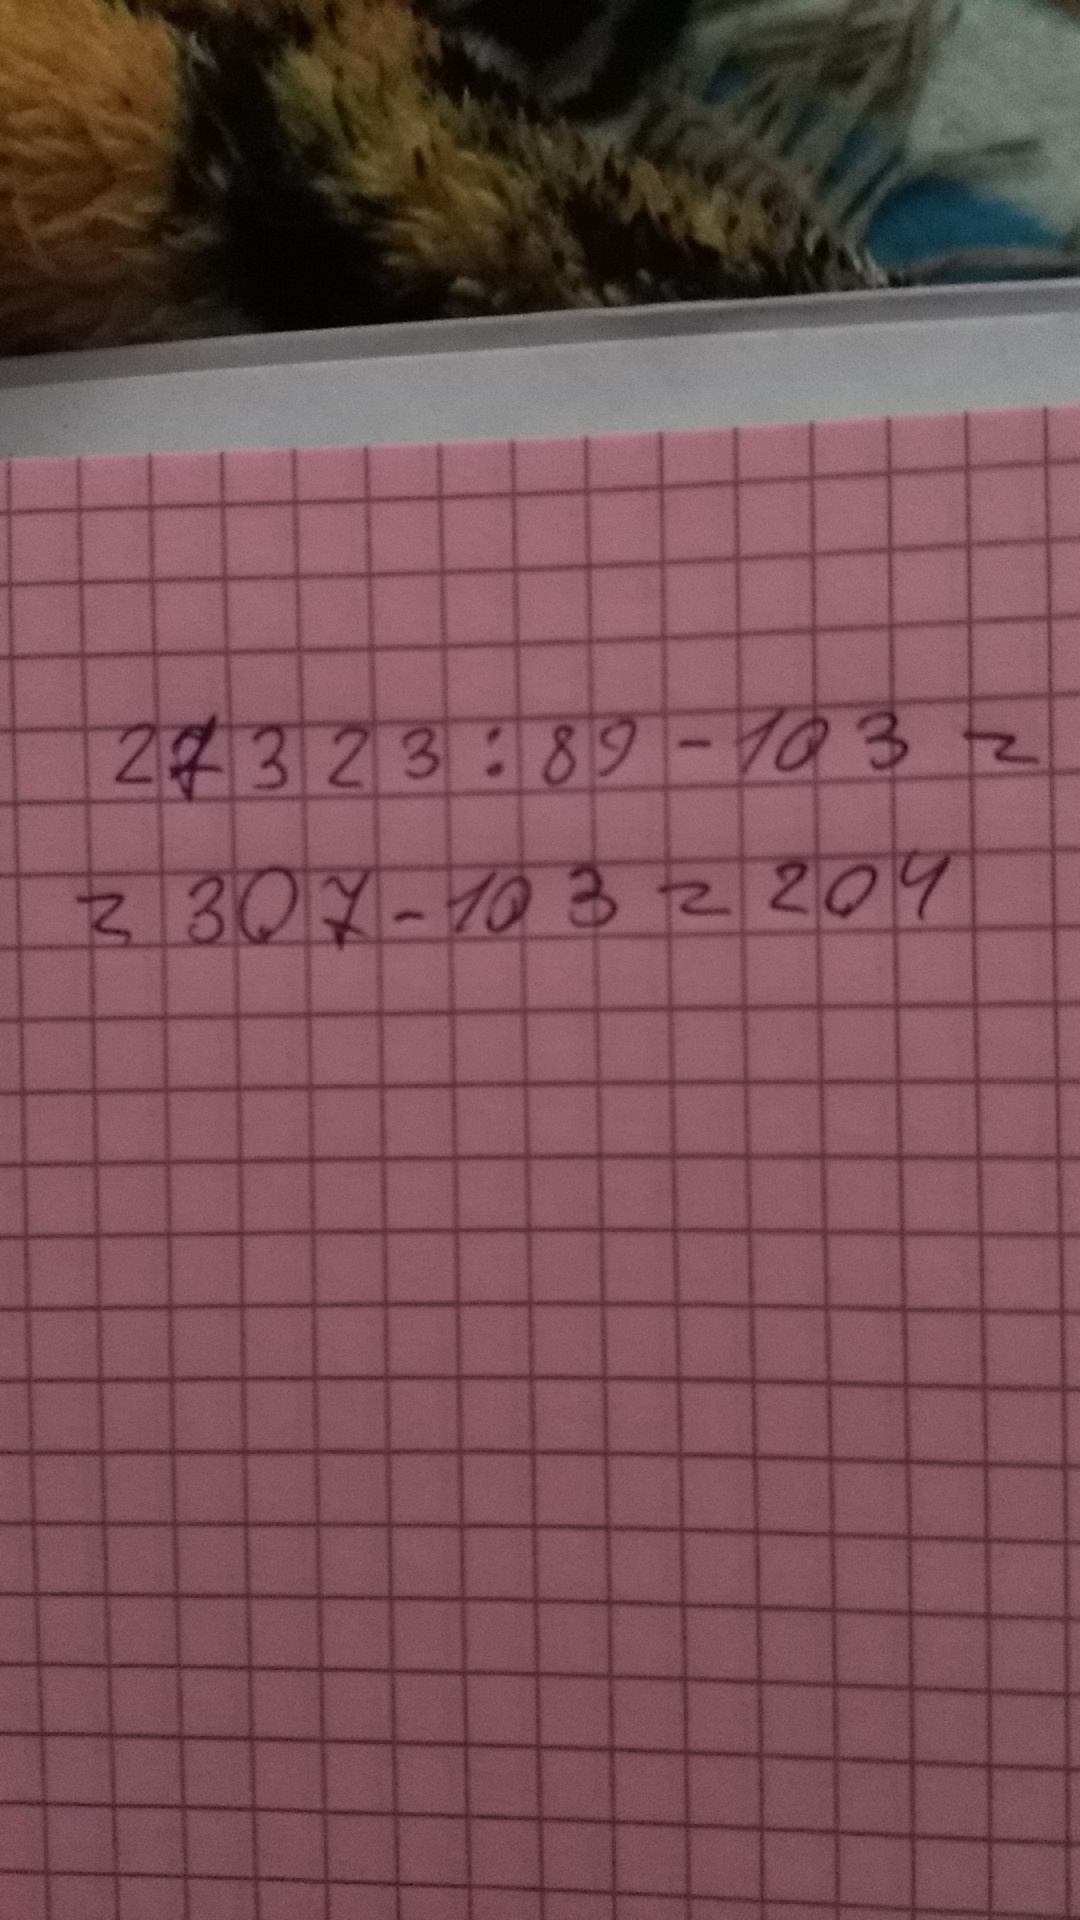 27323:89-103=
=307-103=204